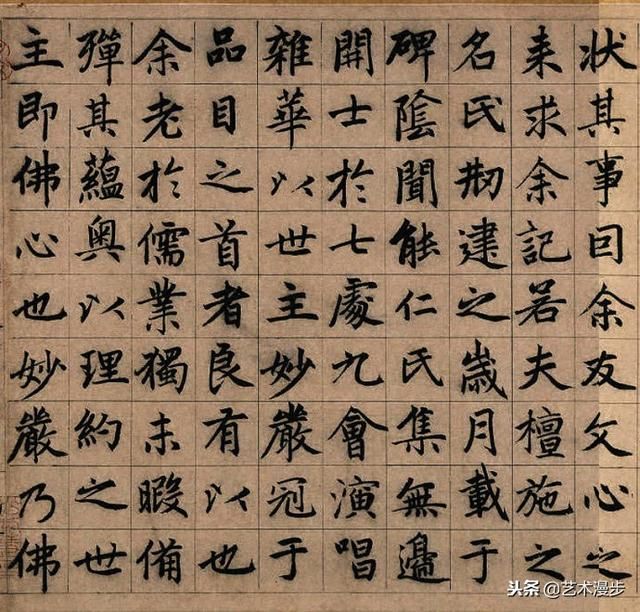 狀其事囙余友文心之
来求余記若夫檀施之
名氏刱建之嵗月載于
碑陰聞能仁氏集無邉
開士於七處九會演唱
雜華以世主妙嚴冠于
品目之首者良有以也
余老於儒業獨未暇備
殫其藴奥以理約之世
主即佛心也妙嚴乃佛
头条 @艺术漫步